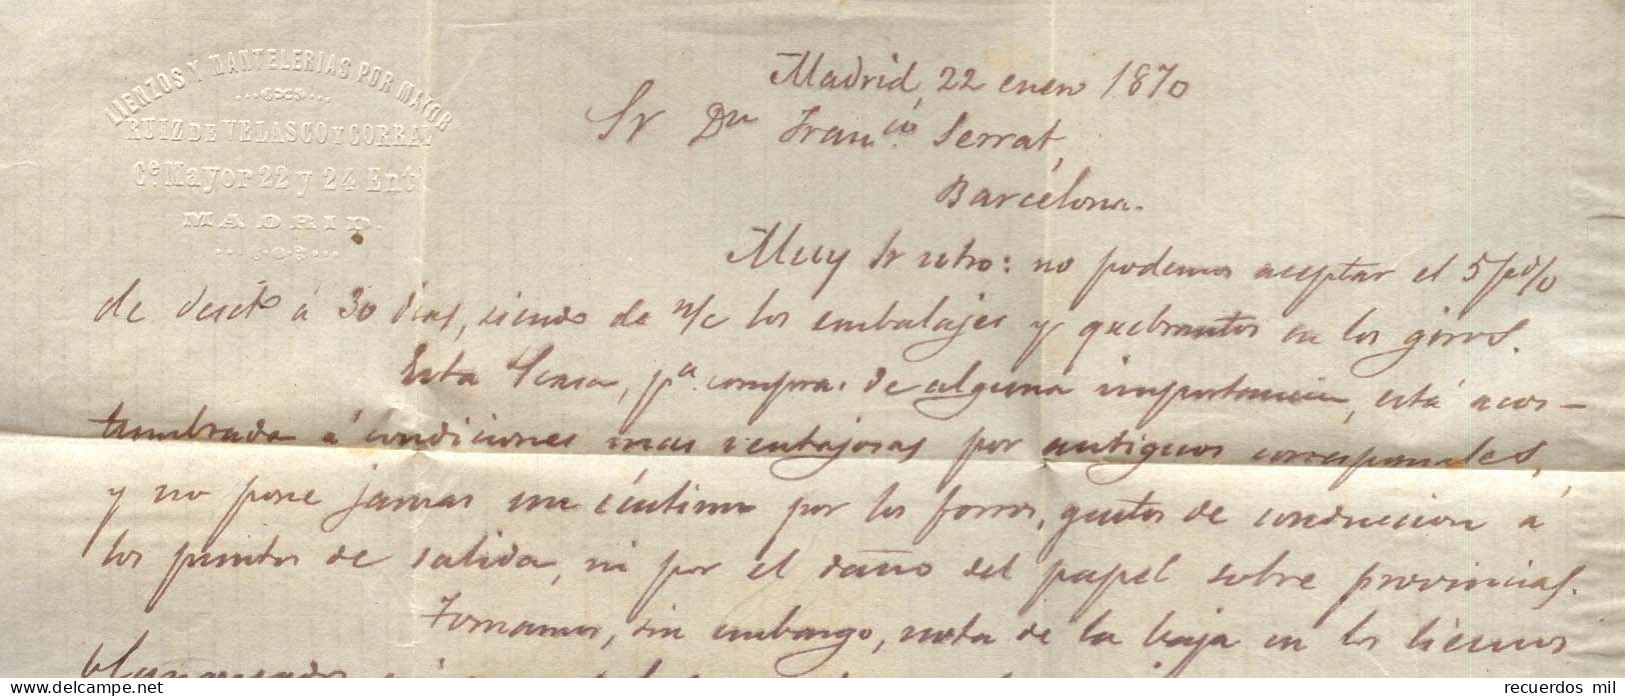 LIENZOS Y MANTELERIAS POR MAYOR
RUIZ DE VELASCO Y CORRAL
Ce Mayor 22 y 24 Entl
MADRID.
Madrid, 22 enero 1870
Sr Dn Francco. Serrat,
Barcelona.
Muy Sr ntro: no podemos aceptar el 5 p%
de descto á 30 dias, siendo de n/c los embalajes y quebrantos en los giros.
Esta casa, pa. compra. de alguna importancia, está acos-
tumbrada á condiciones mas ventajosas por antiguos corresponsales,
y no pone jamas un céntimo por los forros, gastos de conduccion á
los puntos de salida, ni por el daño del papel sobre provincias.
Tomamos, sin embargo, nota de la baja en los lienzos
blanqueados
recuerdos mil